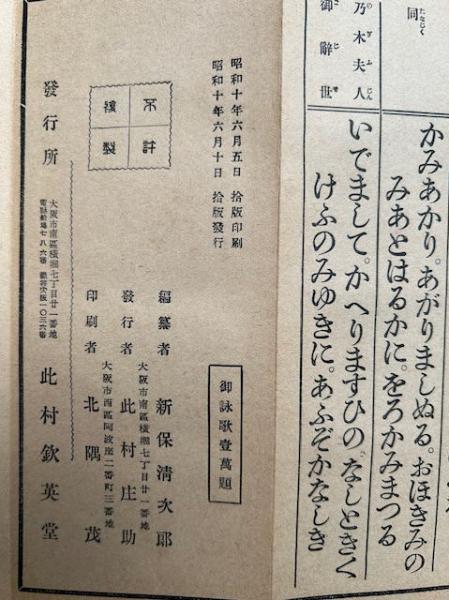 同
たなじく
かみあかり。あがりましぬる。おほきみの
みあとはるかに。をろかみまつる
乃木夫人
のぎふじん
御辭世
いでまして。かへりますひの。なしときく
けふのみゆきに。あふぞかなしき
御詠歌壹萬題
昭和十年六月五日 拾版印刷
昭和十年六月十日 拾版發行
不許
複製
編纂者 新保清次郎
大阪市南區横堀七丁目廿一番地
發行者 此村庄助
大阪市西區阿波座二番町三番地
印刷者 北隅茂
發行所
大阪市南區横堀七丁目廿一番地
此村欽英堂